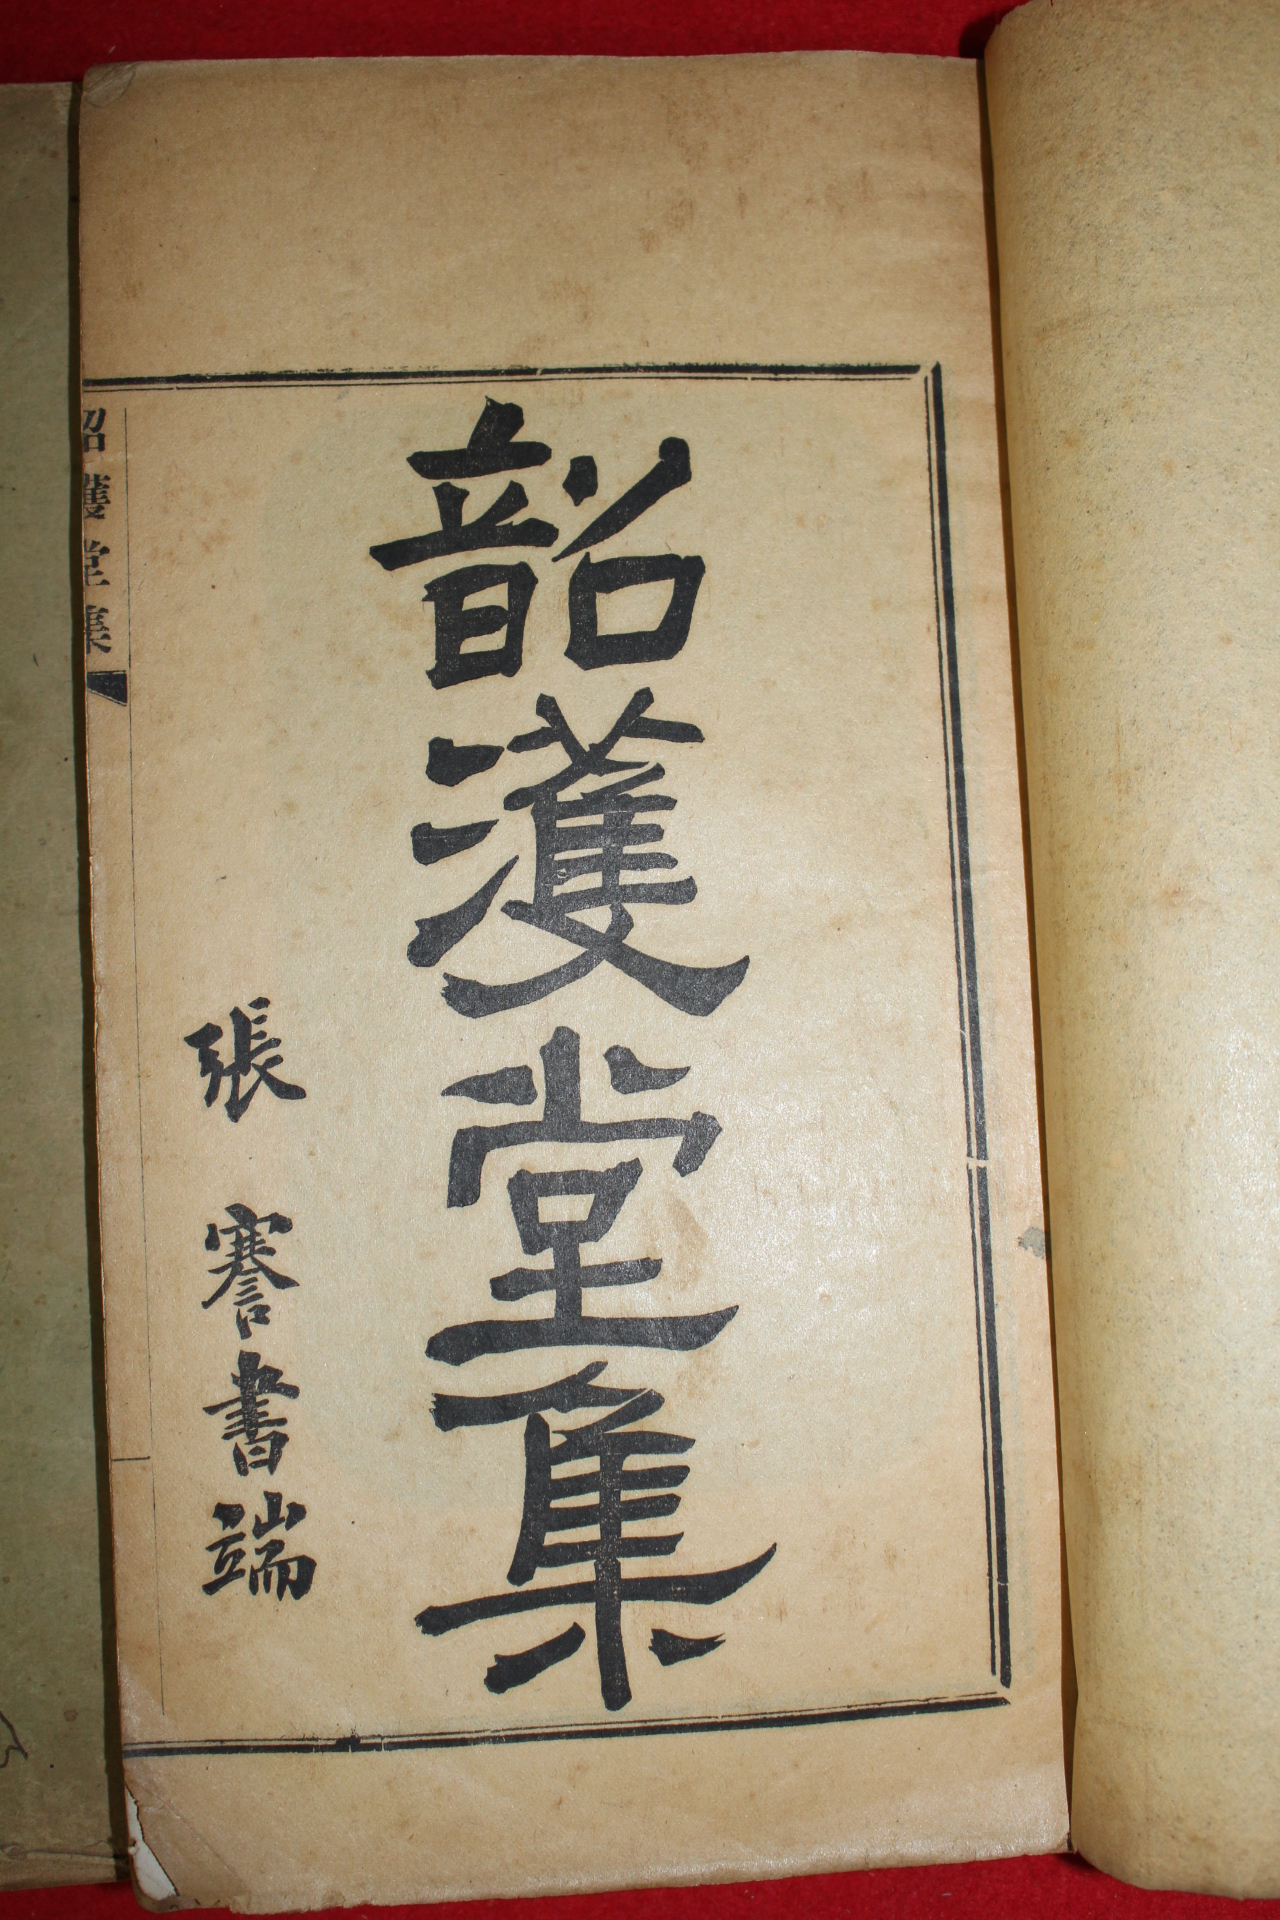 韶濩堂集
張謇書端
韶濩堂集